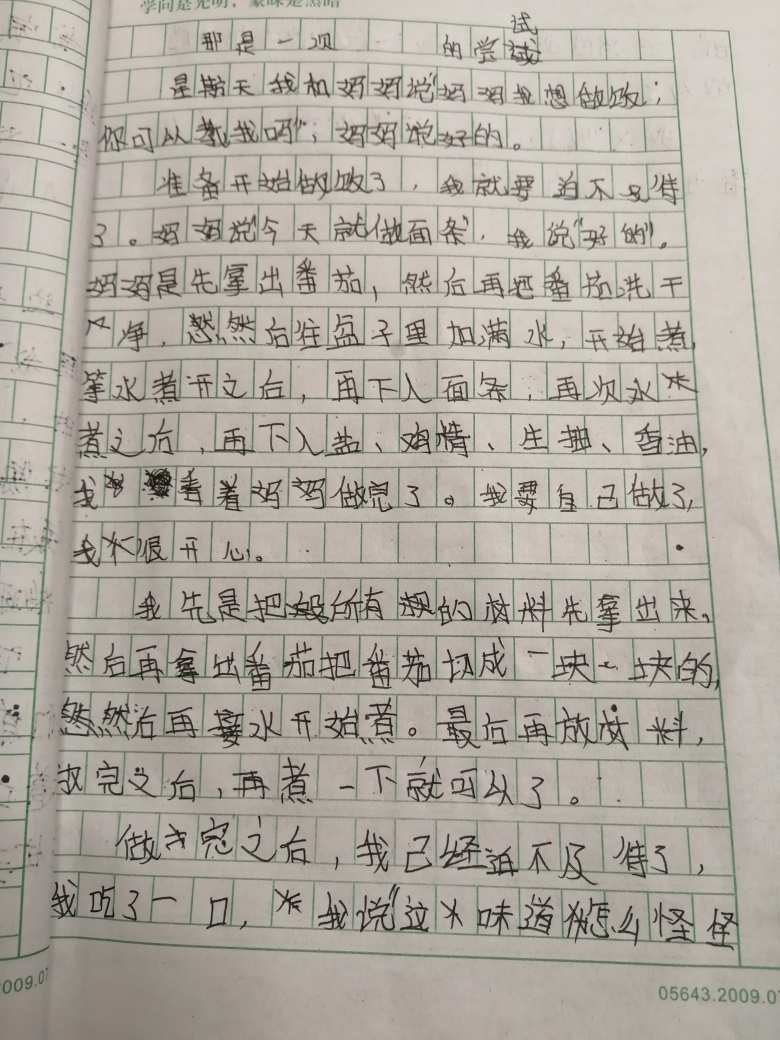 学问是光明，蒙昧是黑暗
那是一次 的尝试
是期天我和妈妈说"妈妈我想做饭，
你可以教我吗"，妈妈说好的。
准备开始做饭了，我就要迫不及待
了。妈妈说"今天就做面条"，我说"好的"。
妈妈是先拿出番茄，然后再把番茄洗干
净，然后往盆子里加满水，开始煮，
等水煮开之后，再下入面条，再次水
煮之后，再下入盐、鸡精、生抽、香油，
我看着妈妈做完了。我要自己做了，
我很开心。
我先是把所有的材料先拿出来。
然后再拿出番茄把番茄切成一块一块的，
然后再接水开始煮。最后再放材料，
放完之后，再煮一下就可以了。
做完之后，我已经迫不及待了，
我吃了一口，我说"这味道怎么怪怪
009.07
05643.2009.07